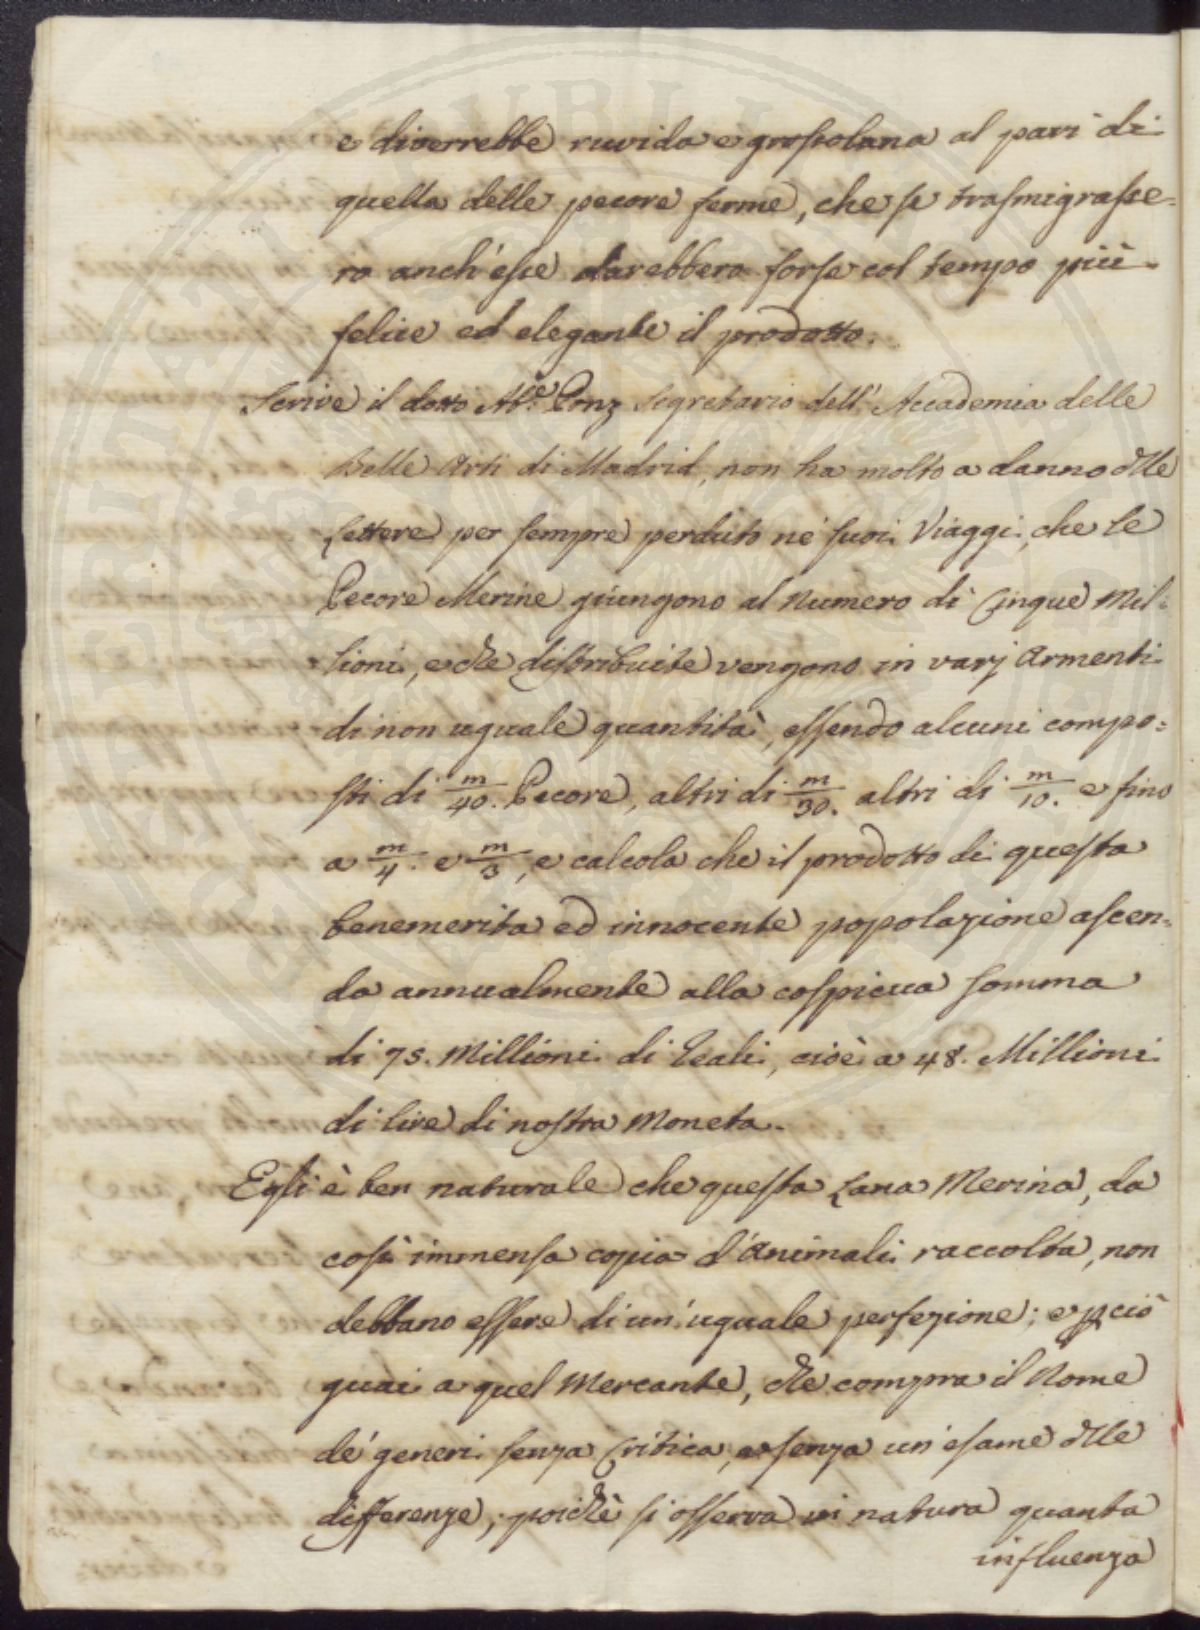 e diverrebbe ruvida e grossolana al pari di
quella delle pecore ferme, che se trasmigrasse-
ro anch'esse darebbero forse col tempo più
felice ed elegante il prodotto.
Scrive il dotto Ab.e Ponz Segretario dell'Accademia delle
Belle Arti di Madrid, non ha molto a danno delle
Lettere per sempre perduto ne' suoi Viaggi, che le
Pecore Merine giungono al Numero di Cinque Mil=
lioni, e che distribuite vengono in varj Armenti
di non uguale quantità, essendo alcuni compo=
sti di m/40. Pecore, altri di m/30. altri di m/10. e fino
a m/4. e m/3, e calcola che il prodotto di questa
benemerita ed innocente popolazione ascen-
da annualmente alla cospicua somma
di 75. Millioni di Reali, cioè a 48. Millioni
di lire di nostra Moneta.
Egli è ben naturale che questa Lana Merina, da
così immensa copia d'Animali raccolta, non
debbano essere di un'uguale perfezione; e pciò
guai a quel Mercante, che compra il Nome
de' generi senza Critica, e senza un'esame delle
differenze; poichè si osserva in natura quanta
influenza